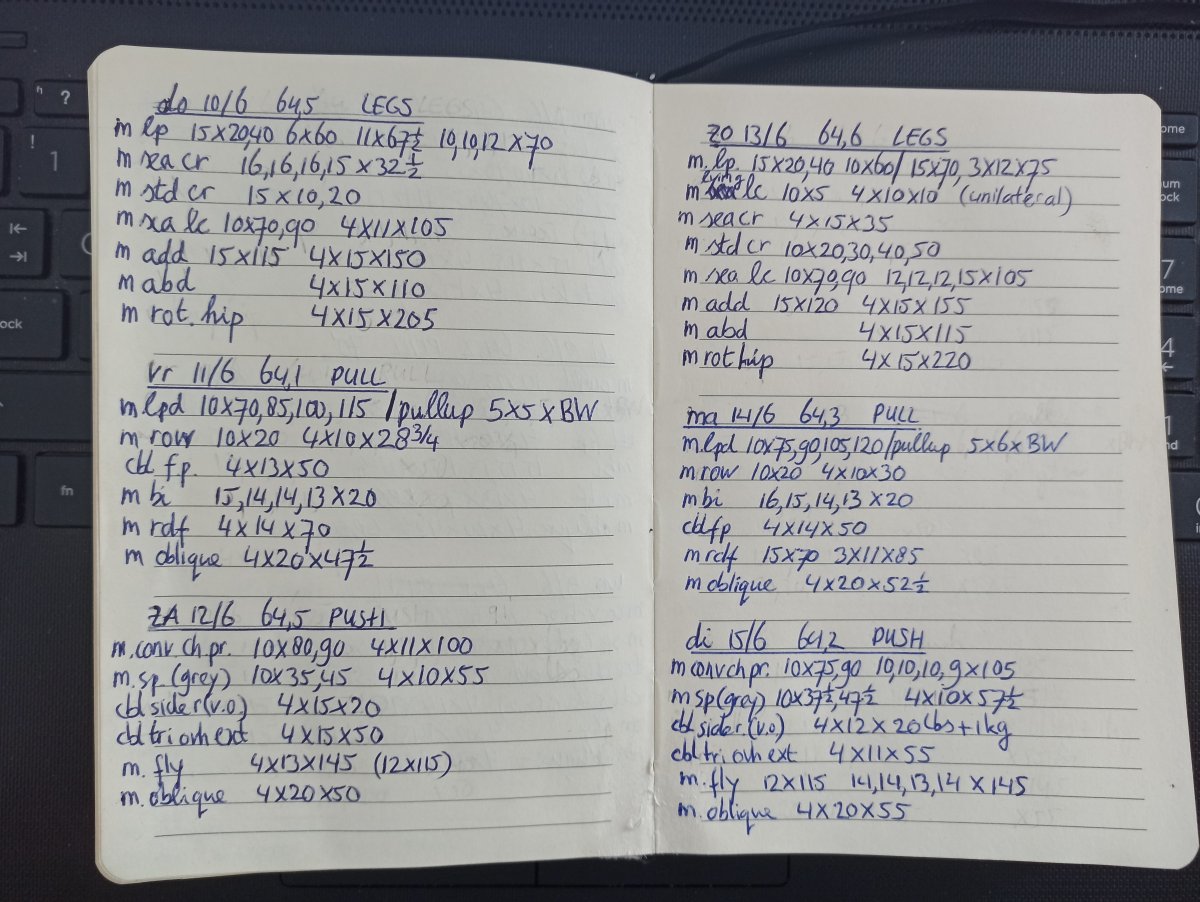 do 10/6 64,5 LEGS
m lp 15x20,40 6x60 11x67½ 10,10,12 x70
m sea cr 16,16,16,15 x 32½
m std cr 15x10,20
m sea lc 10x70,90 4x11x105
m add 15x115 4x15x150
m abd 4x15x110
m rot. hip 4x15x205
vr 11/6 64,1 PULL
m lpd 10x70,85,100,115 /pullup 5x5xBW
m row 10x20 4x10x28¾
cbl fp. 4x13x50
m bi 15,14,14,13 x20
m rdf 4x14x70
m oblique 4x20x47½
ZA 12/6 64,5 PUSH
m.conv ch pr. 10x80,90 4x11x100
m.sp (grey) 10x35,45 4x10x55
cbl sider(v.o) 4x15x20
cbl tri ovh ext 4x15x50
m. fly 4x13x145 (12x115)
m. oblique 4x20x50
zo 13/6 64,6 LEGS
m.lp. 15x20,40 10x60/ 15x70, 3x12x75
m lying lc 10x5 4x10x10 (unilateral)
m seacr 4x15x35
m std cr 10x20,30,40,50
m sea lc 10x70,90 12,12,12,15x105
m add 15x120 4x15x155
m abd 4x15x115
m rot hip 4x15x220
ma 14/6 64,3 PULL
m.lpd 10x75,90,105,120/pullup 5x6xBW
m row 10x20 4x10x30
m bi 16,15,14,13 x20
cbl fp 4x14x50
m rdf 15x70 3x11x85
m oblique 4x20x52½
di 15/6 64,2 PUSH
m conv ch pr. 10x75,90 10,10,10,9x105
m sp(grey) 10x37½,47½ 4x10x57½
cbl sider.(v.o) 4x12x20lbs+1kg
cbl tri ovh ext 4x11x55
m. fly 12x115 14,14,13,14 x145
m. oblique 4x20x55
? 
! 1
ock
fn
ome
um
ock
7
ome
4
1
nd